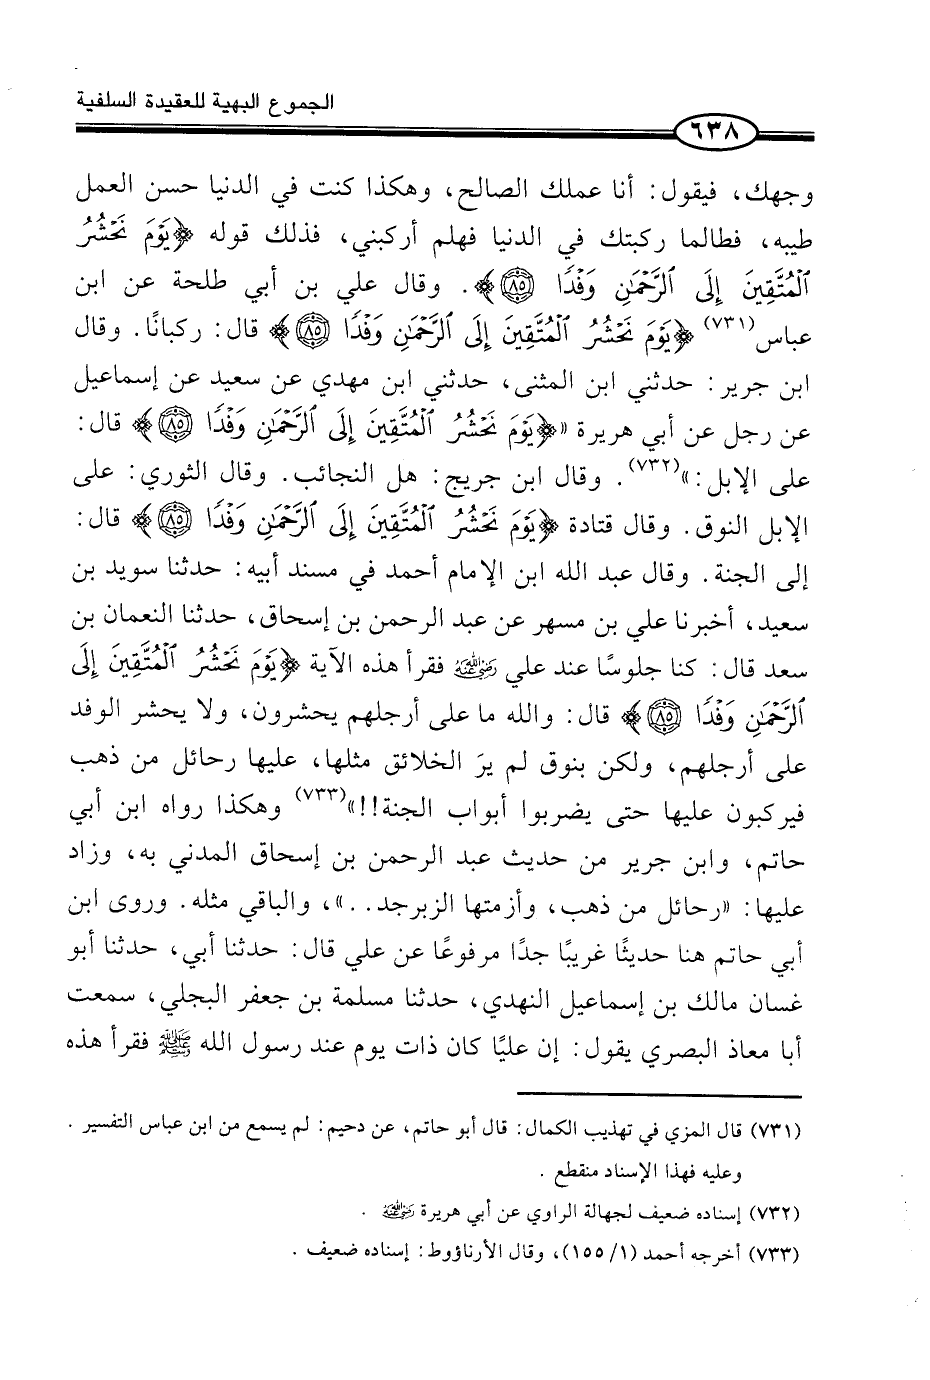 الجموع البهية للعقيدة السلفية
٦٣٨
وجهك، فيقول: أنا عملك الصالح، وهكذا كنت في الدنيا حسن العمل
طيبه، فطالما ركبتك في الدنيا فهلم أركبني، فذلك قوله ﴿يَوْمَ نَحْشُرُ
ٱلْمُتَّقِينَ إِلَى ٱلرَّحْمَٰنِ وَفْدًا ۝٨٥﴾. وقال علي بن أبي طلحة عن ابن
عباس(٧٣١) ﴿يَوْمَ نَحْشُرُ ٱلْمُتَّقِينَ إِلَى ٱلرَّحْمَٰنِ وَفْدًا ۝٨٥﴾ قال: ركبانًا. وقال
ابن جرير: حدثني ابن المثنى، حدثني ابن مهدي عن سعيد عن إسماعيل
عن رجل عن أبي هريرة «﴿يَوْمَ نَحْشُرُ ٱلْمُتَّقِينَ إِلَى ٱلرَّحْمَٰنِ وَفْدًا ۝٨٥﴾ قال:
على الإبل:»(٧٣٢). وقال ابن جريج: هل النجائب. وقال الثوري: على
الإبل النوق. وقال قتادة ﴿يَوْمَ نَحْشُرُ ٱلْمُتَّقِينَ إِلَى ٱلرَّحْمَٰنِ وَفْدًا ۝٨٥﴾ قال:
إلى الجنة. وقال عبد الله ابن الإمام أحمد في مسند أبيه: حدثنا سويد بن
سعيد، أخبرنا علي بن مسهر عن عبد الرحمن بن إسحاق، حدثنا النعمان بن
سعد قال: كنا جلوسًا عند علي رضي الله عنه فقرأ هذه الآية ﴿يَوْمَ نَحْشُرُ ٱلْمُتَّقِينَ إِلَى
ٱلرَّحْمَٰنِ وَفْدًا ۝٨٥﴾ قال: والله ما على أرجلهم يحشرون، ولا يحشر الوفد
على أرجلهم، ولكن بنوق لم يرَ الخلائق مثلها، عليها رحائل من ذهب
فيركبون عليها حتى يضربوا أبواب الجنة!!»(٧٣٣) وهكذا رواه ابن أبي
حاتم، وابن جرير من حديث عبد الرحمن بن إسحاق المدني به، وزاد
عليها: «رحائل من ذهب، وأزمتها الزبرجد..»، والباقي مثله. وروى ابن
أبي حاتم هنا حديثًا غريبًا جدًا مرفوعًا عن علي قال: حدثنا أبي، حدثنا أبو
غسان مالك بن إسماعيل النهدي، حدثنا مسلمة بن جعفر البجلي، سمعت
أبا معاذ البصري يقول: إن عليًا كان ذات يوم عند رسول الله ﷺ فقرأ هذه
(٧٣١) قال المزي في تهذيب الكمال: قال أبو حاتم، عن دحيم: لم يسمع من ابن عباس التفسير.
وعليه فهذا الإسناد منقطع.
(٧٣٢) إسناده ضعيف لجهالة الراوي عن أبي هريرة رضي الله عنه.
(٧٣٣) أخرجه أحمد (١/ ١٥٥)، وقال الأرناؤوط: إسناده ضعيف.